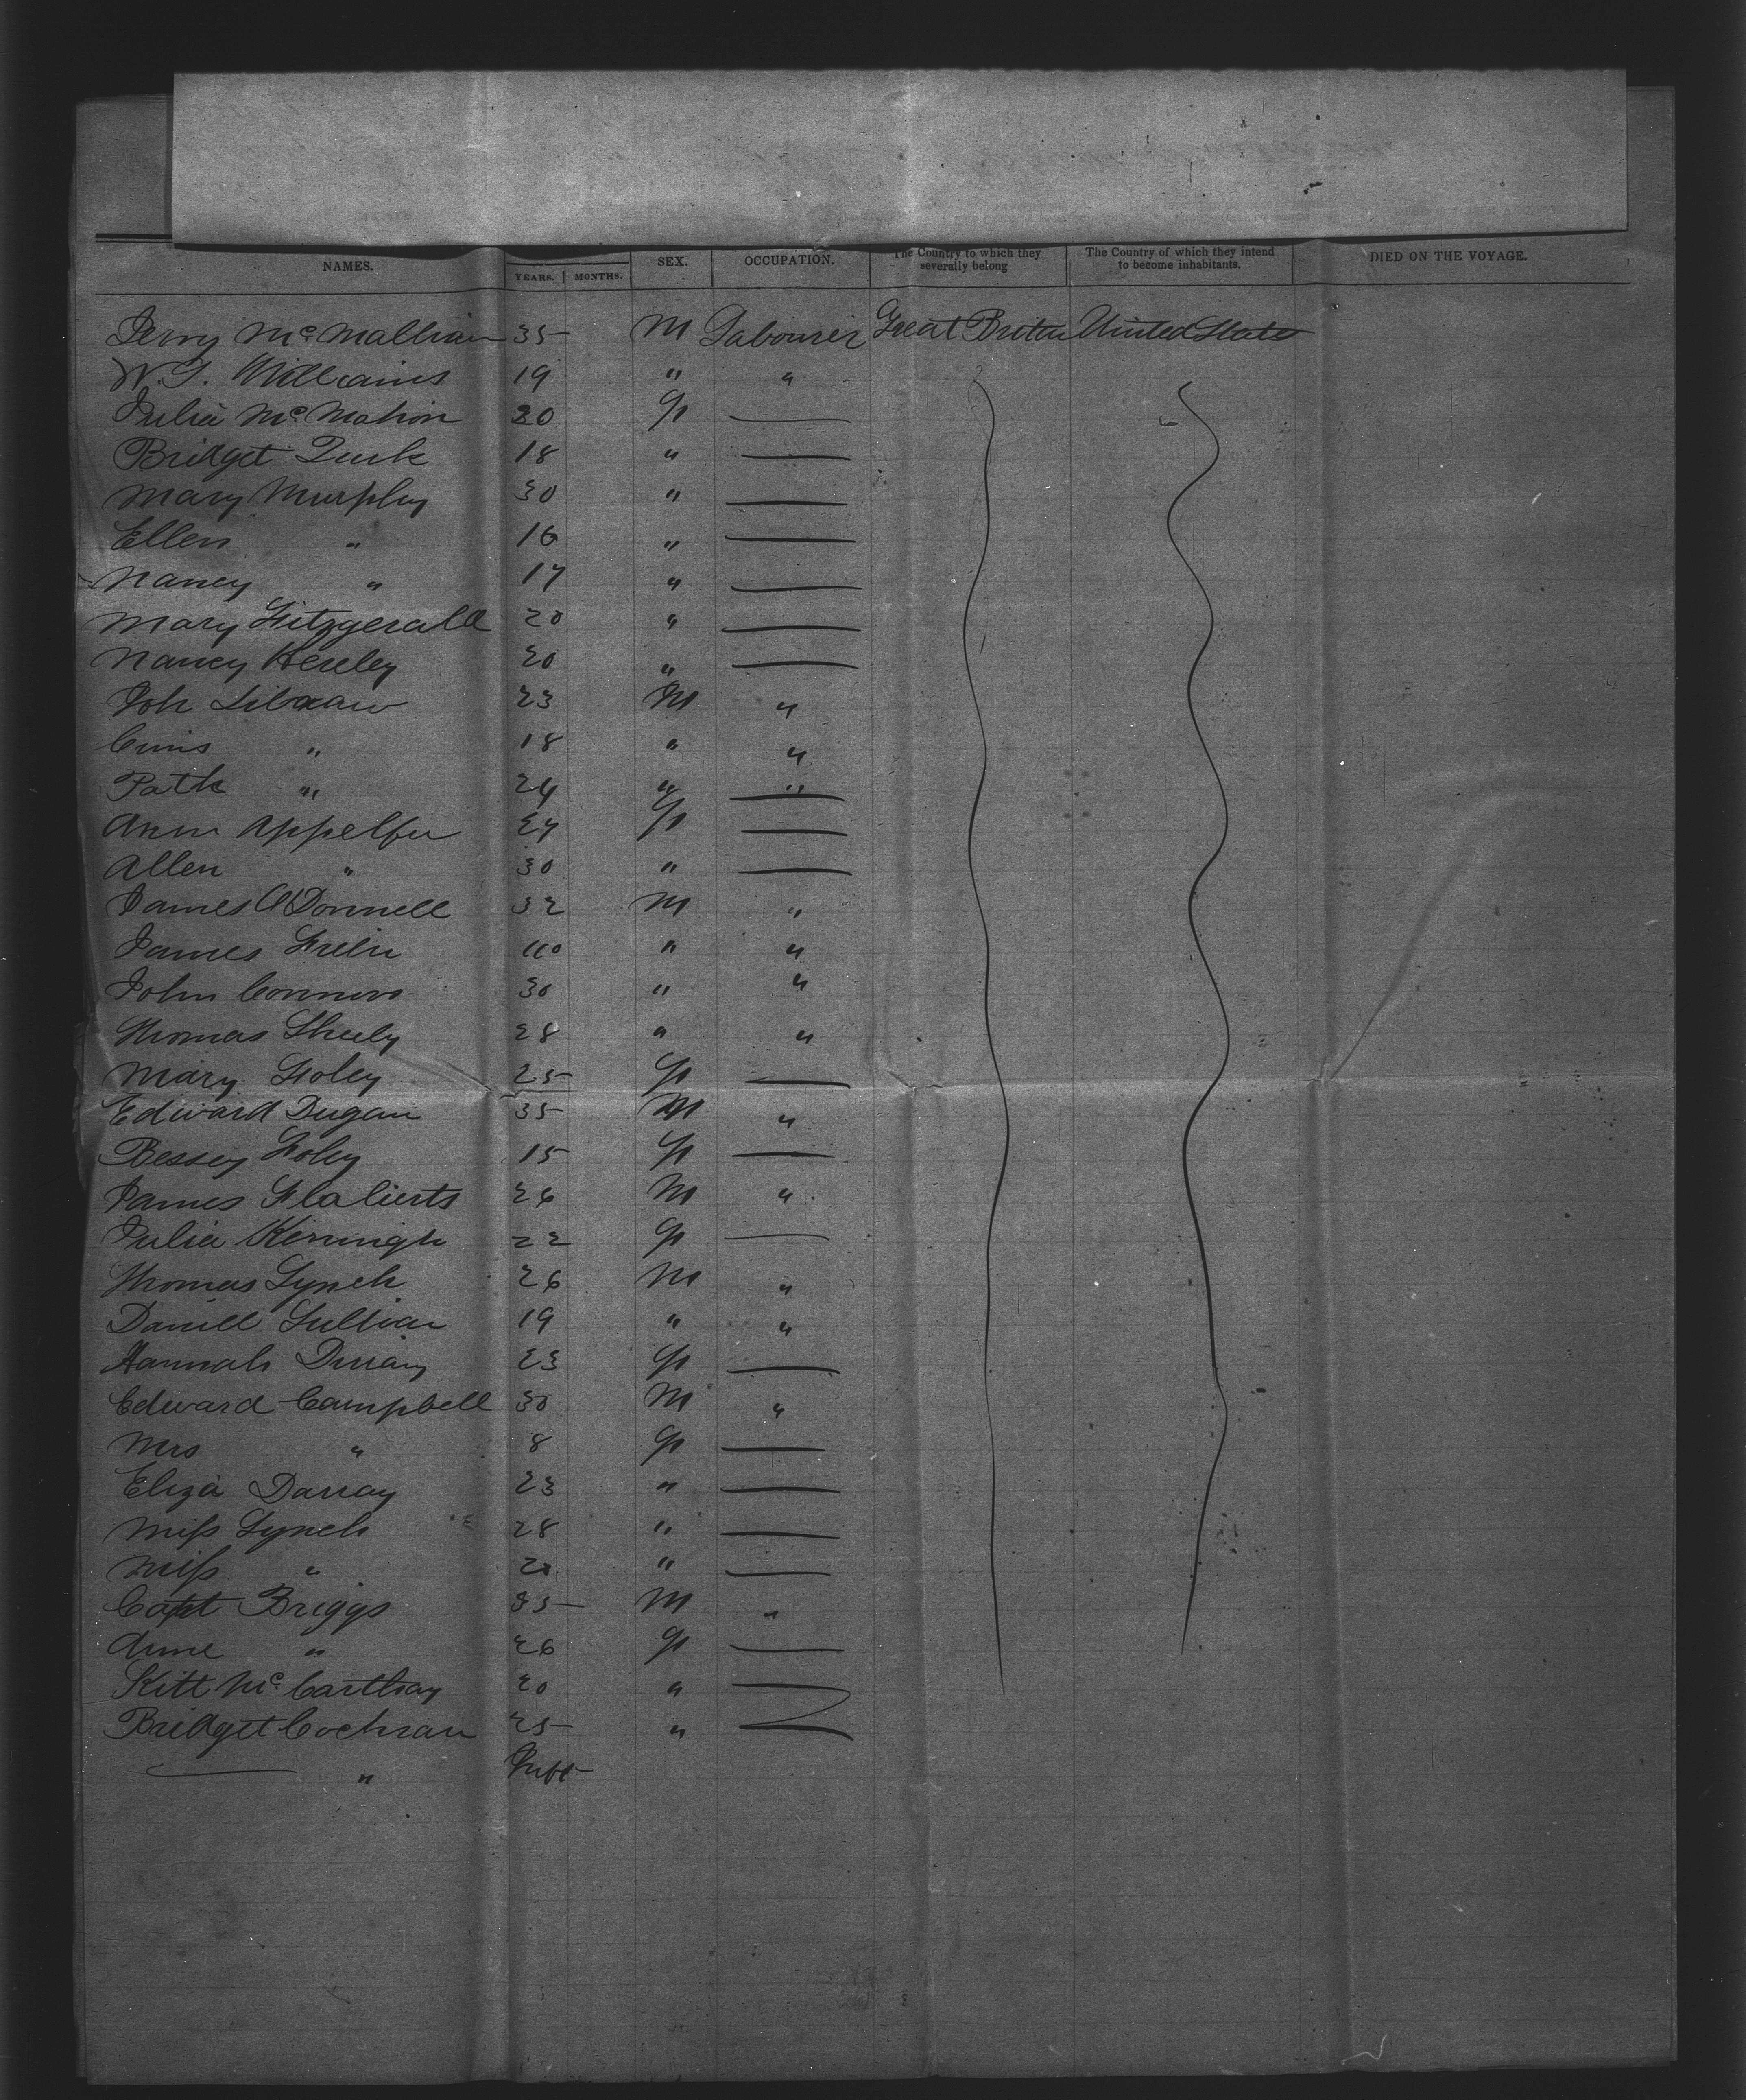 NAMES. YEARS. MONTHS. SEX. OCCUPATION. The Country to which they severally belong The Country of which they intend to become inhabitants. DIED ON THE VOYAGE.
Jerry Mc 35 M Labourer Great Britain United States
W. T. Williams 19 " "
Julia Mc Mahon 20 F —
Bridget 18 " —
Mary Murphy 30 " —
Ellen " 16 " —
Nancy " 17 " —
Mary Fitzgerald 20 " —
Nancy 20 " —
Joh 23 M "
" 18 " "
Patk " 24 " "
Ann 24 F —
Allen " 30 " —
James O'Donnell 32 M "
James " "
John Connors 30 " "
Thomas 28 " "
Mary Foley 25 F —
Edward Dugan 35 M "
Bessey Foley 15 F —
James 26 M "
Julia 22 F —
Thomas Lynch 26 M "
Daniell Sullivan 19 " "
Hannah 23 F —
Edward Campbell 30 M "
Mrs " 8 F —
Eliza Darray 23 " —
Miss Lynch 28 " —
Miss " —
Capt Briggs 35 M "
Anne " 26 F —
Kitt Mc Carthay 20 " —
Bridget Cochran 25 " —
— "